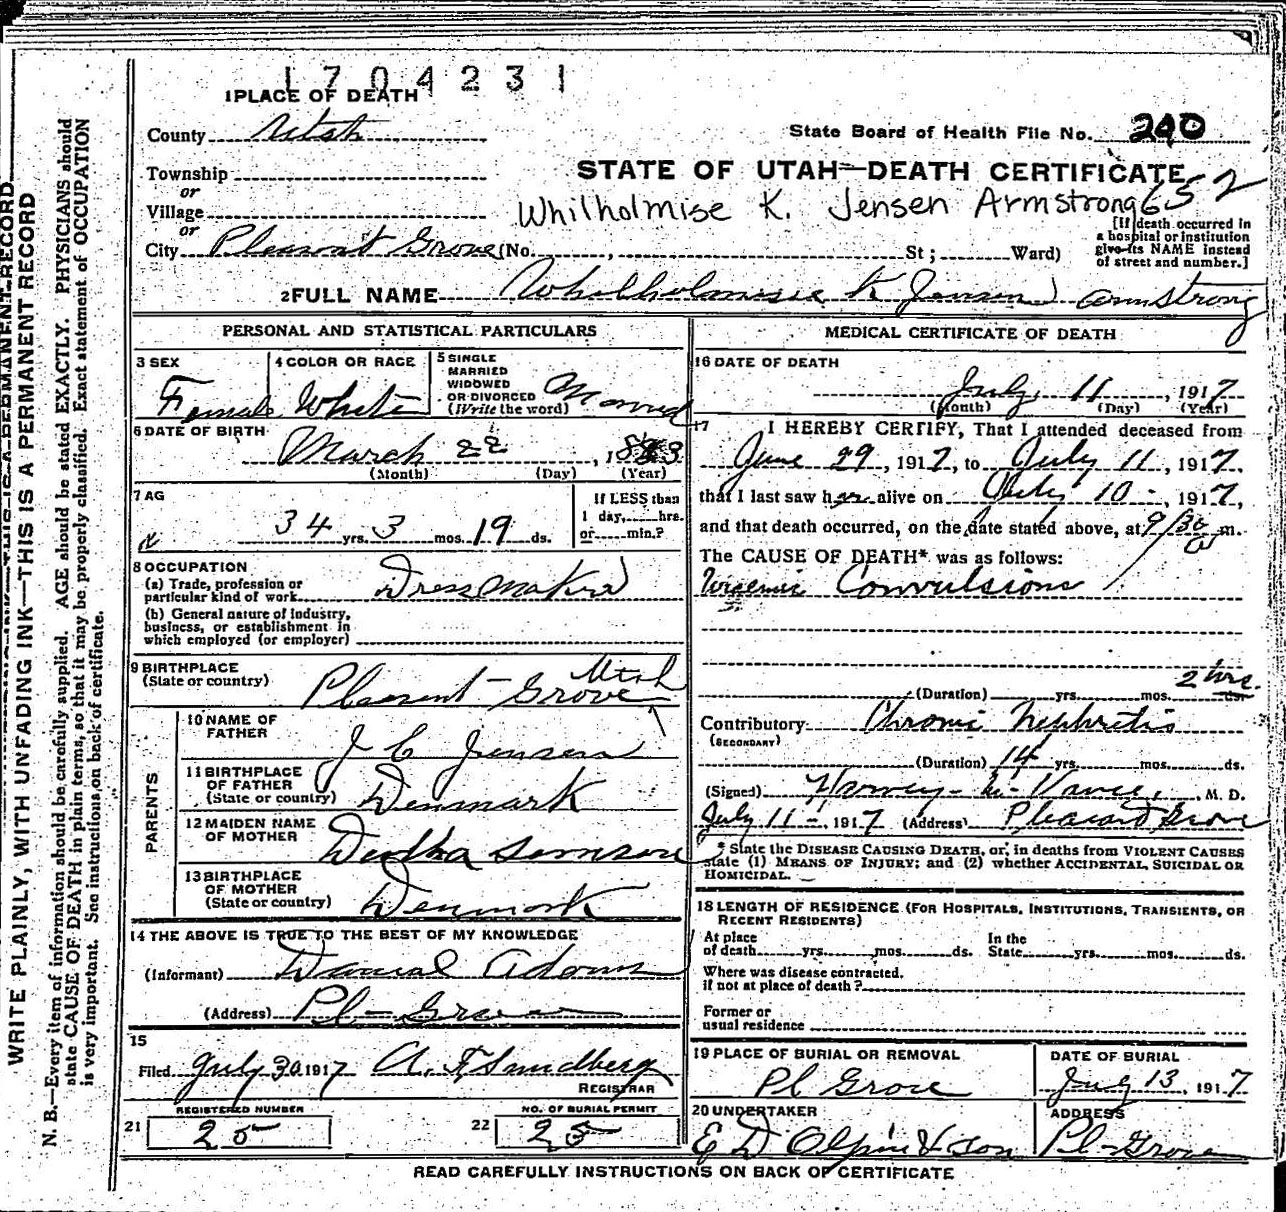 1704231
1 PLACE OF DEATH
County Utah
State Board of Health File No. 240
Township
or
STATE OF UTAH—DEATH CERTIFICATE
Village
Whilholmise K. Jensen Armstrong 652
or
City Pleasant Grove (No. , St; Ward)
[If death occurred in a hospital or institution give its NAME instead of street and number.]
2 FULL NAME Whilholmisie K Jensen Armstrong
PERSONAL AND STATISTICAL PARTICULARS
3 SEX
Female
4 COLOR OR RACE
White
5 SINGLE
MARRIED
WIDOWED
OR DIVORCED
(Write the word)
Married
6 DATE OF BIRTH
March 22, 1883
(Month) (Day) (Year)
7 AG
34 yrs. 3 mos. 19 ds.
If LESS than
1 day, hrs.
or min.?
8 OCCUPATION
(a) Trade, profession or
particular kind of work Dressmaker
(b) General nature of industry,
business, or establishment in
which employed (or employer)
9 BIRTHPLACE
(State or country) Pleasant-Grove Utah
PARENTS
10 NAME OF
FATHER J C Jensen
11 BIRTHPLACE
OF FATHER
(State or country) Denmark
12 MAIDEN NAME
OF MOTHER
13 BIRTHPLACE
OF MOTHER
(State or country) Denmark
14 THE ABOVE IS TRUE TO THE BEST OF MY KNOWLEDGE
(Informant) Daniel Adams
(Address) Pl-Grove
15
Filed July 30 1917 A. F Sundberg
REGISTRAR
21 REGISTERED NUMBER
25
22 NO. OF BURIAL PERMIT
25
MEDICAL CERTIFICATE OF DEATH
16 DATE OF DEATH
July 11, 1917
(Month) (Day) (Year)
17 I HEREBY CERTIFY, That I attended deceased from
June 29, 1917, to July 11, 1917.
that I last saw her alive on July 10-, 1917,
and that death occurred, on the date stated above, at 9/30 a m.
The CAUSE OF DEATH* was as follows:
Uraemic Convulsions
(Duration) yrs. mos. 2 hrs. ds.
Contributory Chronic Nephritis
(SECONDARY)
(Duration) 14 yrs. mos. ds.
(Signed) Harvey M. Vance, M. D.
July 11-, 1917 (Address) Pleasant Grove
* State the DISEASE CAUSING DEATH, or, in deaths from VIOLENT CAUSES
state (1) MEANS OF INJURY; and (2) whether ACCIDENTAL, SUICIDAL OR
HOMICIDAL.
18 LENGTH OF RESIDENCE (FOR HOSPITALS, INSTITUTIONS, TRANSIENTS, OR
RECENT RESIDENTS)
At place
of death yrs. mos. ds.
In the
State yrs. mos. ds.
Where was disease contracted.
if not at place of death?
Former or
usual residence
19 PLACE OF BURIAL OR REMOVAL
Pl Grove
DATE OF BURIAL
July 13, 1917
20 UNDERTAKER
E D Olpin & Son
ADDRESS
Pl-Grove
READ CAREFULLY INSTRUCTIONS ON BACK OF CERTIFICATE
WRITE PLAINLY, WITH UNFADING INK—THIS IS A PERMANENT RECORD
N. B.—Every item of information should be carefully supplied. AGE should be stated EXACTLY. PHYSICIANS should
state CAUSE OF DEATH in plain terms, so that it may be properly classified. Exact statement of OCCUPATION
is very important. See instructions on back of certificate.